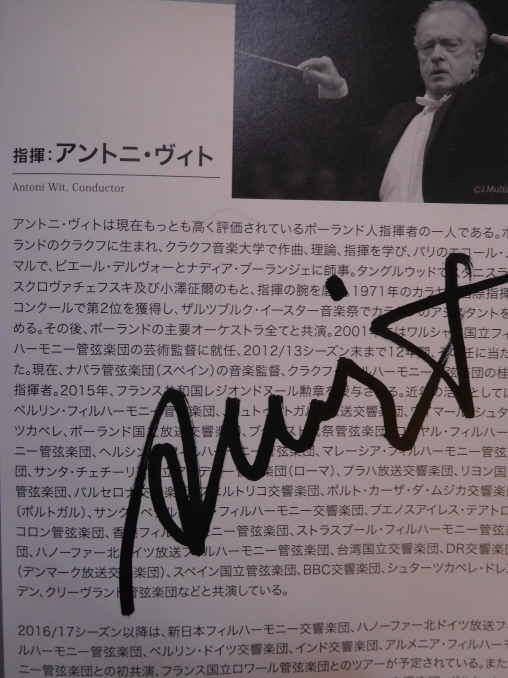 指揮:アントニ・ヴィト
Antoni Wit, Conductor
©J.Multa
アントニ・ヴィトは現在もっとも高く評価されているポーランド人指揮者の一人である。ポ
ランドのクラクフに生まれ、クラクフ音楽大学で作曲、理論、指揮を学び、パリのエコール・
マルで、ピエール・デルヴォーとナディア・ブーランジェに師事。タングルウッドで スタニスラ
スクロヴァチェフスキ及び小澤征爾のもと、指揮の腕を 1971年のカラヤ 国際指揮
コンクールで第2位を獲得し、ザルツブルク・イースター音楽祭でカ のアシスタントを
める。その後、ポーランドの主要オーケストラ全てと共演。2001 はワルシャ 国立フィ
ハーモニー管弦楽団の芸術監督に就任、2012/13シーズン末まで12年 任に当た
た。現在、ナバラ管弦楽団(スペイン)の音楽監督、クラクフ ハーモニー管弦楽団の桂
指揮者。2015年、フランス 和国レジオンドヌール勲章を 与される。近年の として
ベルリン・フィルハーモニー管弦楽団、 放送交響楽団、 シュタ
ツカペレ、ポーランド国 放送交響楽団、 祭管弦楽団、 ヤル・フィルハー
ニー管弦楽団、ヘルシン 管弦楽団、マレーシア・フィルハーモニー管弦楽
団、サンタ・チェチーリ 管弦楽団(ローマ)、プラハ放送交響楽団、リヨン国
管弦楽団、バルセロナ 交響楽団、 ルトリコ交響楽団、ポルト・カーザ・ダ・ムジカ交響楽
(ポルトガル)、サンク ペ フィルハーモニー交響楽団、ブエノスアイレス・テアトロ
コロン管弦楽団、香港フィル ニー管弦楽団、ストラスブール・フィルハーモニー管弦楽
団、ハノーファー北ドイツ放送フィルハーモニー管弦楽団、台湾国立交響楽団、DR交響楽団
(デンマーク放送交 楽団)、スペイン国立管弦楽団、BBC交響楽団、シュターツカペレ・ドレ
デン、クリーヴランド管弦楽団などと共演している。
2016/17シーズン以降は、新日本フィルハーモニー交響楽団、ハノーファー北ドイツ放送フ
ルハーモニー管弦楽団、ベルリン・ドイツ交響楽団、インド交響楽団、アルメニア・フィルハーモ
ニー管弦楽団との初共演、フランス国立ロワール管弦楽団とのツアーが予定されている。また